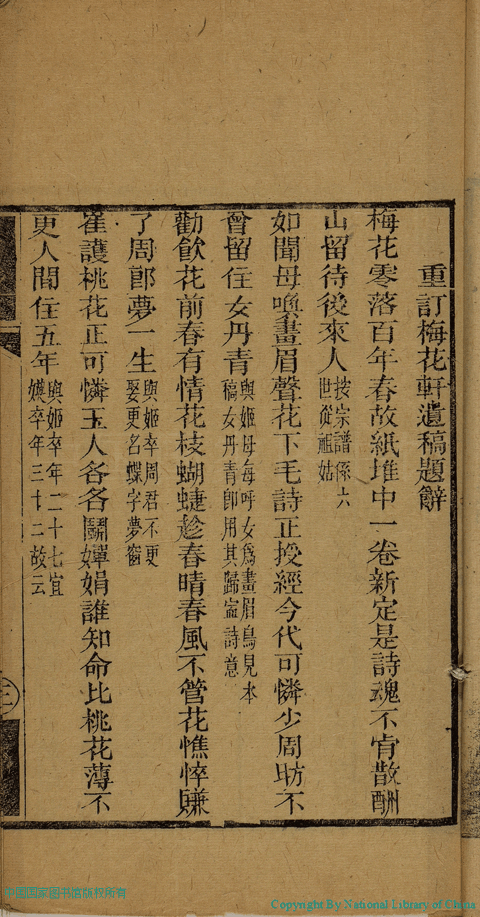 重訂梅花軒遺稿題辭
梅花零落百年春故紙堆中一卷新定是詩魂不肯散酬
山留待後來人按宗譜係六世從祖姑
如聞母喚畫眉聲花下毛詩正授經今代可憐少周昉不
曾留住女丹青與姬母每呼女爲畫眉鳥見本稿女丹青卽用其歸寍詩意
勸飮花前春有情花枝蝴蜨趁春晴春風不管花憔悴賺
了周郎夢一生與姬卒周君不更娶更名蝶字夢窗
崔護桃花正可憐玉人各各鬭嬋娟誰知命比桃花薄不
更人間住五年與姬卒年二十七宜嬽卒年三十二故云
中国国家图书馆版权所有
Copyright By National Library of China